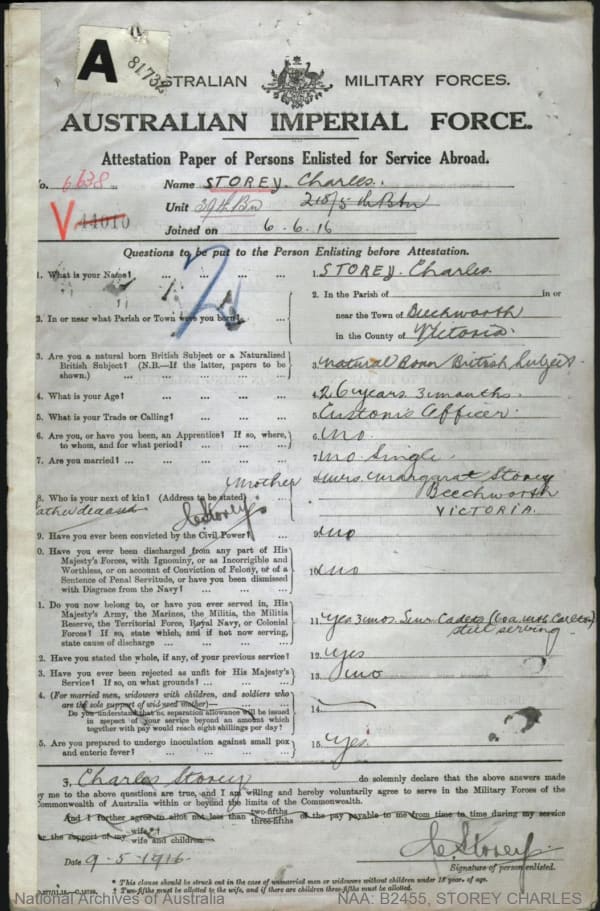 A
81732
AUSTRALIAN MILITARY FORCES.
AUSTRALIAN IMPERIAL FORCE.
Attestation Paper of Persons Enlisted for Service Abroad.
No. 6638 Name STOREY. Charles.
V. 44010 Unit
Joined on 6.6.16
Questions to be put to the Person Enlisting before Attestation.
1. What is your Name? ... 1. STOREY. Charles.
2. In or near what Parish or Town were you born? ... 2. In the Parish of in or
near the Town of Beechworth
in the County of Victoria.
3. Are you a natural born British Subject or a Naturalized British Subject? (N.B.—If the latter, papers to be shown.) ... 3. Natural Born British Subject.
4. What is your Age? ... 4. 26 years 3 months.
5. What is your Trade or Calling? ... 5. Customs Officer.
6. Are you, or have you been, an Apprentice? If so, where, to whom, and for what period? ... 6. No.
7. Are you married? ... 7. No. Single.
8. Who is your next of kin? (Address to be stated) Mother
Father deceased
C Storey
Mrs. Margaret Storey
Beechworth
VICTORIA.
9. Have you ever been convicted by the Civil Power? ... 9. No
10. Have you ever been discharged from any part of His Majesty's Forces, with Ignominy, or as Incorrigible and Worthless, or on account of Conviction of Felony, or of a Sentence of Penal Servitude, or have you been dismissed with Disgrace from the Navy? ... 10. No
11. Do you now belong to, or have you ever served in, His Majesty's Army, the Marines, the Militia, the Militia Reserve, the Territorial Force, Royal Navy, or Colonial Forces? If so, state which, and if not now serving, state cause of discharge ... 11. Yes 3 mos. Senr. Cadets
still serving
12. Have you stated the whole, if any, of your previous service? 12. Yes
13. Have you ever been rejected as unfit for His Majesty's Service? If so, on what grounds? ... 13. No
14. (For married men, widowers with children, and soldiers who are the sole support of widowed mother)—
Do you understand that no separation allowance will be issued in respect of your service beyond an amount which together with pay would reach eight shillings per day? 14.
15. Are you prepared to undergo inoculation against small pox and enteric fever? ... 15. Yes.
I, Charles Storey do solemnly declare that the above answers made
by me to the above questions are true, and I am willing and hereby voluntarily agree to serve in the Military Forces of the
Commonwealth of Australia within or beyond the limits of the Commonwealth.
And I further agree to allot not less than two-fifths three-fifths of the pay payable to me from time to time during my service
for the support of my wife* † wife and children.
Date 9-5-1916. C Storey
Signature of person enlisted.
* This clause should be struck out in the case of unmarried men or widowers without children under 18 years of age.
† Two-fifths must be allotted by the wife, and if there are children three-fifths must be allotted.
National Archives of Australia NAA: B2455, STOREY CHARLES